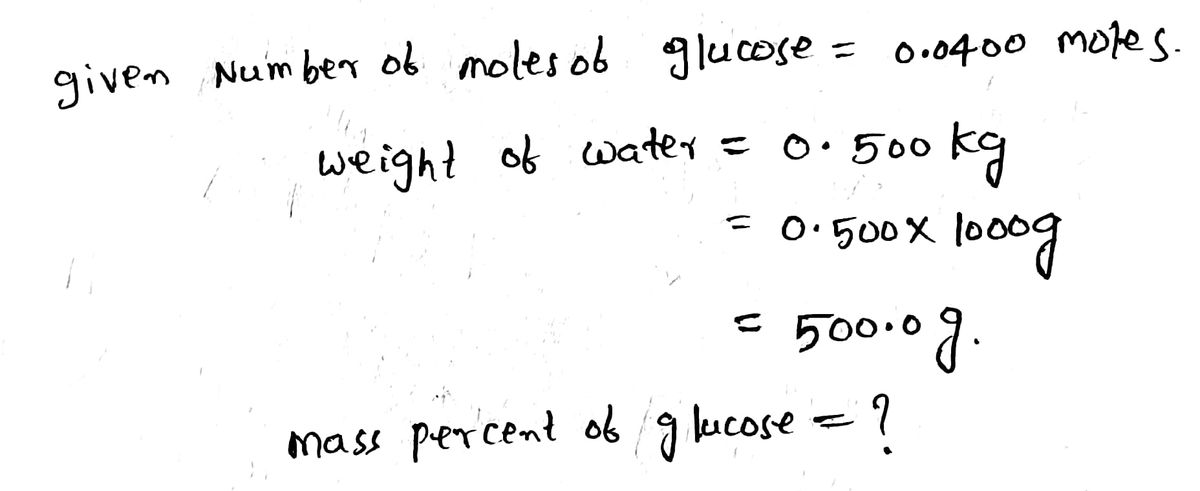 given Number of moles of glucose = 0.0400 moles.
weight of water = 0.500 kg
= 0.500 x 1000g
= 500.0 g.
mass percent of glucose = ?